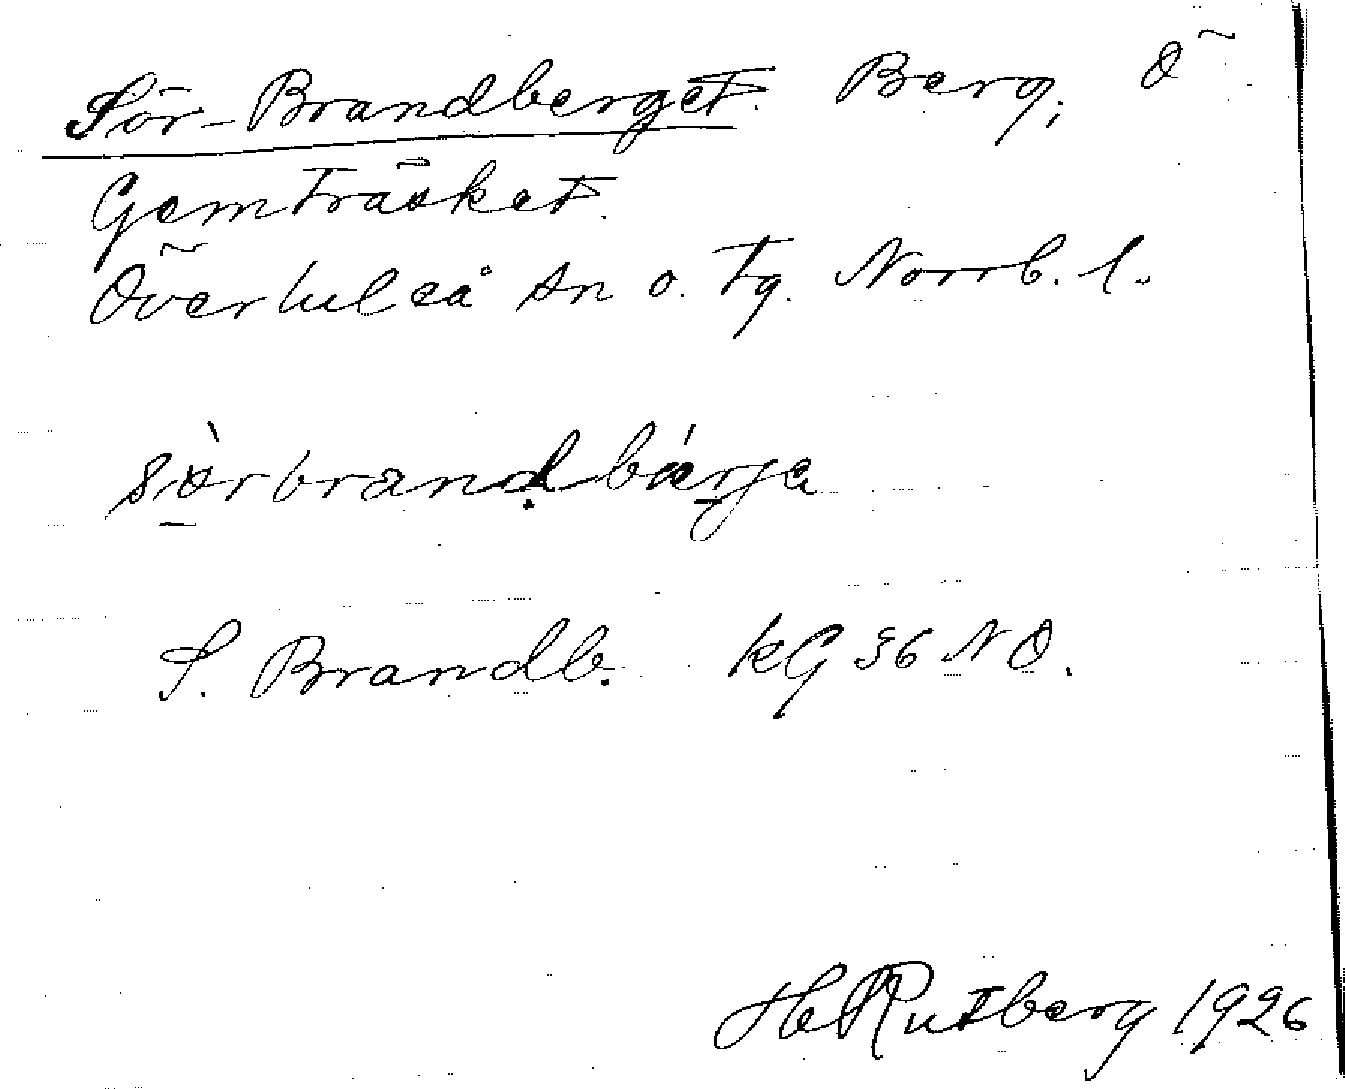 Sör-Brandberget. Berg, Ö
Gemträsket.
Överluleå sn o. tg. Norrb. l.
sörbrandbärja
S. Brandb. kG 36 NO.
H Rutberg 1926